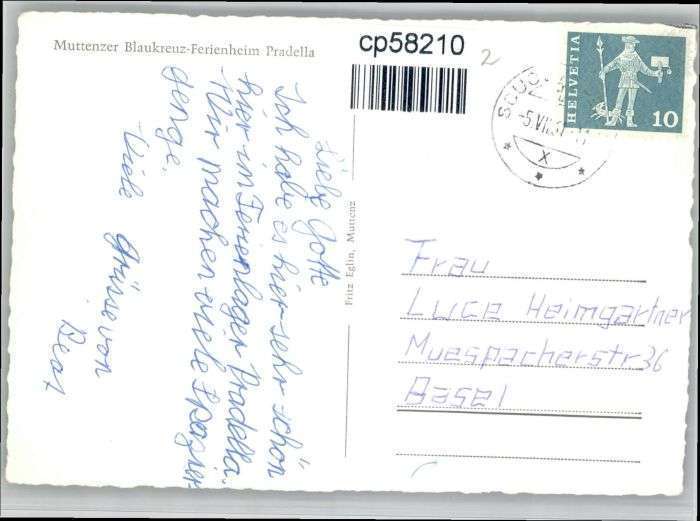 Muttenzer Blaukreuz-Ferienheim Pradella
cp58210
2
HELVETIA
10
-5.VII.
X
Liebe Gotte
Ich habe es hier sehr schön
hier im Ferienlager Pradella.
Wir machen viele Spazier-
genge.
Viele Grüsse von
Beat
Fritz Eglin, Muttenz
Frau
Luce Heimgartner
Muespacherstr 36
Basel